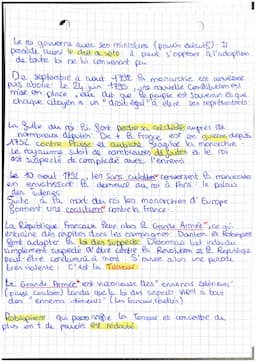 Le roi gouverne avec ses ministres (pouvoir exécutif). Il
possède aussi le droit de véto : il peut s'opposer à l'adoption
de toute loi ne lui convenant pas.
De septembre à août 1792 la monarchie est
pas abolie. Le 24 juin 1793, une nouvelle Constitution est
mise en place, elle dit que le peuple est souverain et que
chaque citoyen a un "droit égal" à élire ses représentants.
La fuite du roi lui fait perdre sa crédibilité auprès de
nombreux députés. De + la France est en guerre depuis
1792 contre Prusse et Autriche la monarchie.
Le royaume subit de nombreuses défaites et le roi
est suspecté de complicité avec l'ennemi.
Le 10 août 1792, les Sans culottes renversent la monarchie
en envahissant la demeure du roi à Paris : le palais
des tuileries.
Suite à la mort du roi les monarchies d'Europe
forment une coalition contre la France.
La République Française lève alors la Grande Armée, ce qui
entraîne des révoltes dans les campagnes. Danton et Robespierre
font adopter la loi des suspects. Désormais tout individu
simplement suspecté d'être contre la Révolution et la République
peut être condamné à mort. S'ouvre alors une période
très violente : C'est la Terreur.
La Grande Armée est victorieuse des "ennemis extérieurs"
(pays coalisés) tandis que la loi des suspects vient à bout
des "ennemis intérieurs" (
Robespierre qui personnifie la Terreur et concentre de
plus en + de pouvoirs est redouté.